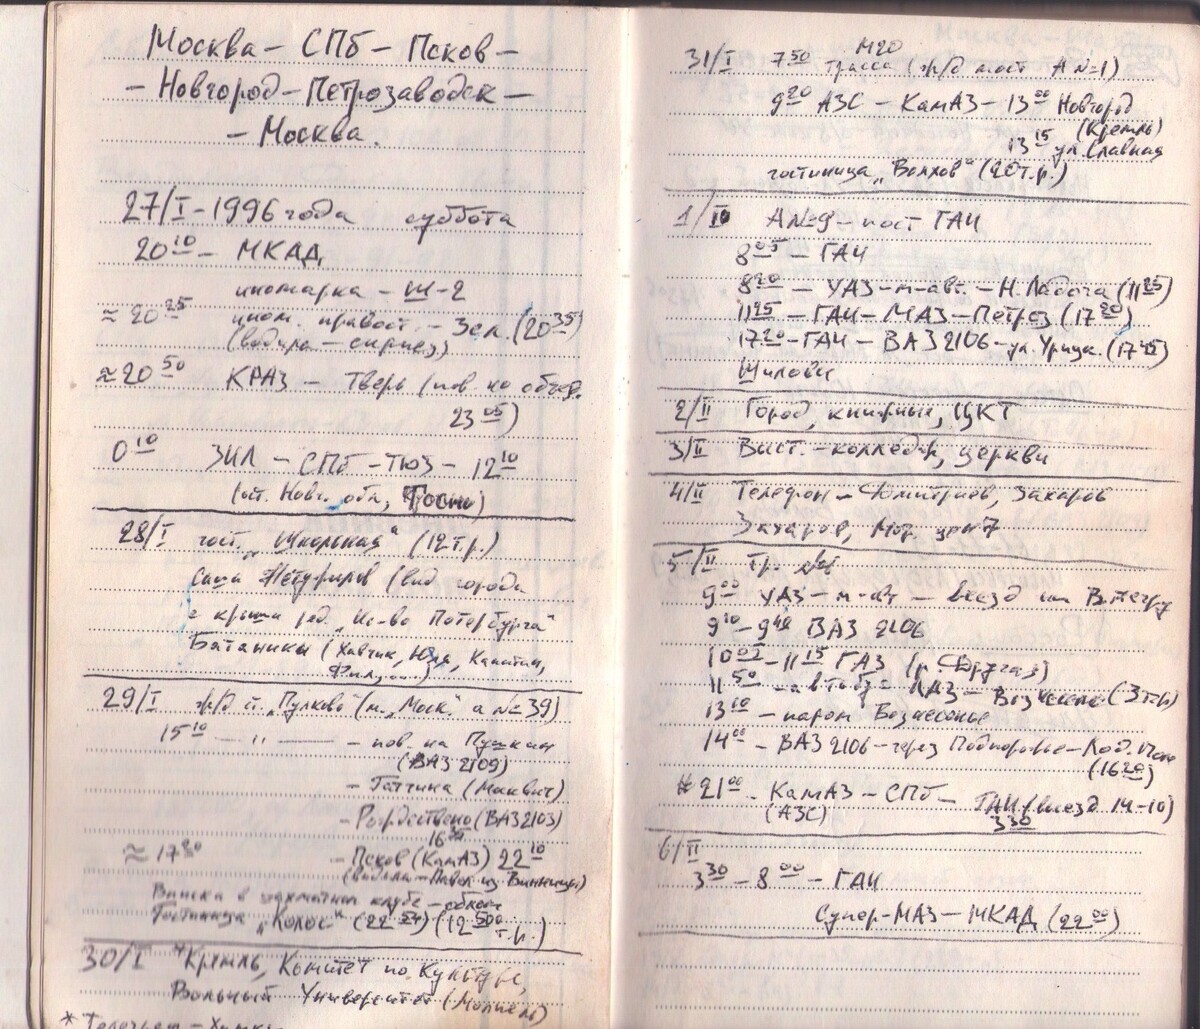 Москва – СПб – Псков –
– Новгород – Петрозаводск –
– Москва.
27/I – 1996 года суббота
20 10 – МКАД
иномарка – Ш-2
≈ 20 25 ином. правост. – Зел. (20 35)
≈ 20 50 КРАЗ – Тверь (пов. на объезд.
23 05)
0 10 ЗИЛ – СПб – ТЮЗ – 12 10
(ст. Новг. обл., Тосно)
28/I гост. „Школьная“ (12 т.р.)
Саша (вид города
с крыши ред. Петербурга“
Ботаники (Хивчик, Юля, Капитан,
Фил, ...)
29/I ж/д ст. „Пулково“ (м. „Моск.“ а №39)
15 10 — " — – пов. на Пушкин
(ВАЗ 2109)
– Гатчина (Москвич)
– Рождествено (ВАЗ 2103)
16
≈ 17 20 – Псков (КамАЗ) 22 10
(водила – Павел из Винницы)
Вписка в шахматном клубе – облом
Гостиница „Колос“ (22 24) (12 500
т.р.)
30/I *Кремль, Комитет по Культуре,
Вольный Университет
31/I 7 50 М20
трасса (ж/д мост А №1)
9 20 АЗС – КамАЗ – 13 00 Новгород
(Кремль)
13 15 ул. Славная
гостиница „Волхов“ (20 т.р.)
1/II А №9 – пост ГАИ
8 05 – ГАИ
8 20 – УАЗ – м-авт. – Н. Ладога (11 25)
11 25 – ГАИ – МАЗ – Петроз (17 20)
17 20 – ГАИ – ВАЗ 2106 – ул. Урицк. (17 45)
Шиловы
2/II Город, книжные, ЦКТ
3/II Выст. – колледж, церкви
4/II Телефон – Дмитриев, Захаров
Захаров,
5/II Тр.
9 00 УАЗ – м-авт – выезд на Вытегру
9 10 – 9 40 ВАЗ 2106
10 05 – 11 15 ГАЗ
11 50 – автобус ЛАЗ – Вознесенье (3 т.р)
13 10 – паром Вознесенье
14 00 – ВАЗ 2106 – через Подпорожье – Лод. Поле
(16 20)
21 00 – КамАЗ – СПб – ГАИ (выезд 14-10)
(АЗС) 3 30
6/II
3 30 – 8 00 – ГАИ
Супер-МАЗ – МКАД (22 00)